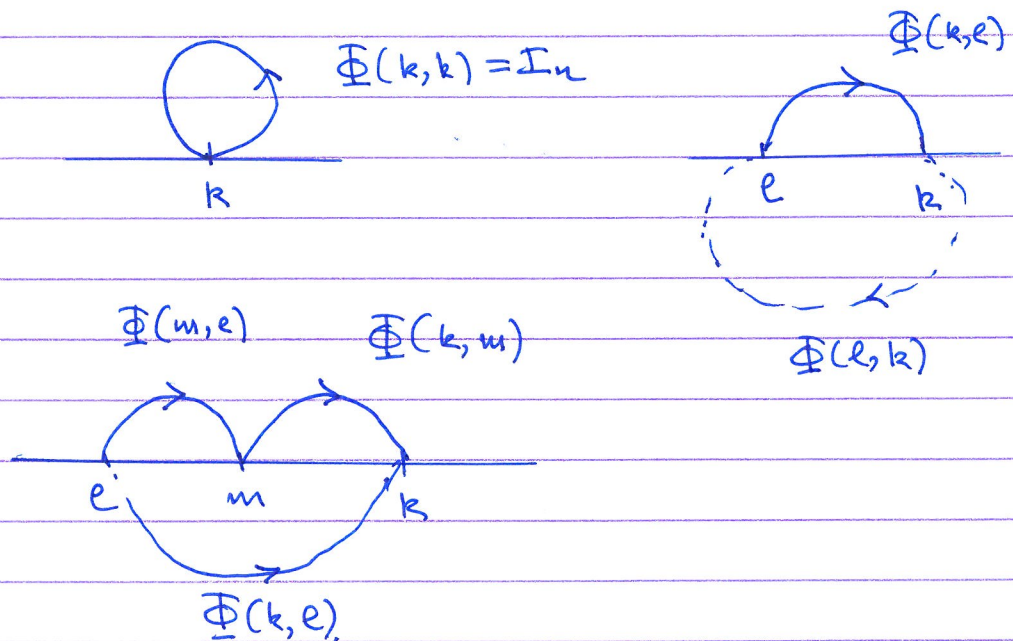 Φ(k,k) = In
k
Φ(k,l)
l
k
Φ(l,k)
Φ(m,l)
Φ(k,m)
l
m
k
Φ(k,l).